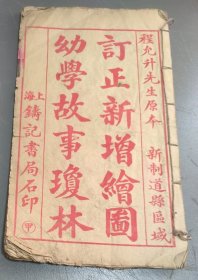 程允升先生原本　新制道縣區域
訂正新增繪圖
幼學故事瓊林
上海鑄記書局石印
甲